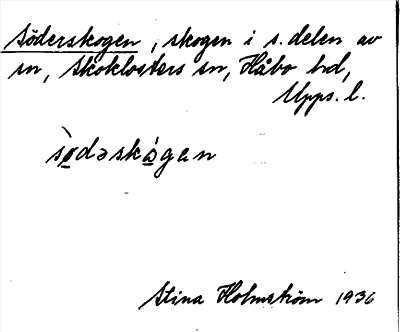 Söderskogen, skogen i s. delen av
sn, Skoklosters sn, Håbo hd,
Upps. l.
sò̤dəskó̤gan
Stina Holmström 1936